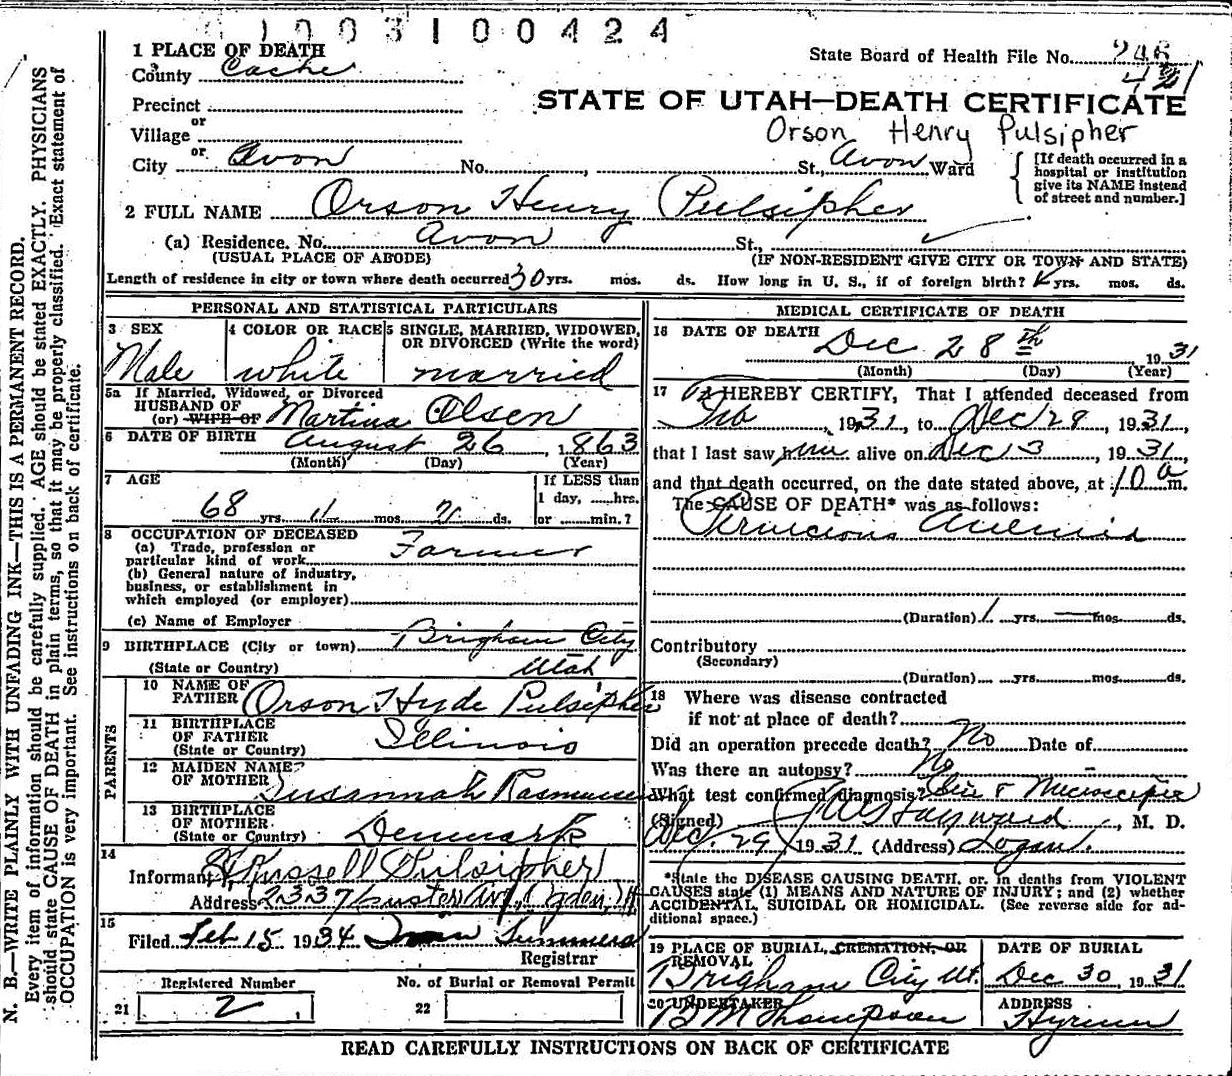 1003100424
1 PLACE OF DEATH
County Cache
State Board of Health File No. 246
421
Precinct
or
Village
or
City Avon No. , St., Avon Ward
STATE OF UTAH—DEATH CERTIFICATE
Orson Henry Pulsipher
[If death occurred in a
hospital or institution
give its NAME instead
of street and number.]
2 FULL NAME Orson Henry Pulsipher
(a) Residence. No. Avon St.,
(USUAL PLACE OF ABODE) (IF NON-RESIDENT GIVE CITY OR TOWN AND STATE)
Length of residence in city or town where death occurred 30 yrs. mos. ds. How long in U. S., if of foreign birth? yrs. mos. ds.
PERSONAL AND STATISTICAL PARTICULARS
3 SEX
Male
4 COLOR OR RACE
white
5 SINGLE, MARRIED, WIDOWED,
OR DIVORCED (Write the word)
married
5a If Married, Widowed, or Divorced
HUSBAND OF
(or) WIFE OF Martina Olsen
6 DATE OF BIRTH August 26, 1863
(Month) (Day) (Year)
7 AGE
68 yrs. mos. 2 ds.
If LESS than
1 day, hrs.
or min.?
8 OCCUPATION OF DECEASED
(a) Trade, profession or
particular kind of work Farmer
(b) General nature of industry,
business, or establishment in
which employed (or employer)
(c) Name of Employer
9 BIRTHPLACE (City or town) Brigham City
(State or Country) Utah
PARENTS
10 NAME OF
FATHER Orson Hyde Pulsipher
11 BIRTHPLACE
OF FATHER
(State or Country) Illinois
12 MAIDEN NAME
OF MOTHER Susannah Rasmussen
13 BIRTHPLACE
OF MOTHER
(State or Country) Denmark
14
Informant H Russell Pulsipher
Address 2337 Custer Av., Ogden, Ut
15
Filed Feb 15 1934 Summers
Registrar
Registered Number
21 2
No. of Burial or Removal Permit
22
MEDICAL CERTIFICATE OF DEATH
16 DATE OF DEATH Dec 28th 1931
(Month) (Day) (Year)
17 I HEREBY CERTIFY, That I attended deceased from
Feb, 1931, to Dec 29, 1931,
that I last saw him alive on Dec 13, 1931,
and that death occurred, on the date stated above, at 10 a m.
The CAUSE OF DEATH* was as follows:
Pernicious Anemia
(Duration) 1 yrs. — mos. ds.
Contributory
(Secondary)
(Duration) yrs. mos. ds.
18 Where was disease contracted
if not at place of death?
Did an operation precede death? No Date of
Was there an autopsy? No –
What test confirmed diagnosis? Clin & Microscopic
(Signed) Hayward, M. D.
Dec. 29, 1931 (Address) Logan.
*State the DISEASE CAUSING DEATH, or, in deaths from VIOLENT
CAUSES state (1) MEANS AND NATURE OF INJURY; and (2) whether
ACCIDENTAL, SUICIDAL OR HOMICIDAL. (See reverse side for ad-
ditional space.)
19 PLACE OF BURIAL, CREMATION, OR
REMOVAL
Brigham City Ut.
DATE OF BURIAL
Dec 30, 1931
20 UNDERTAKER
B M Thompson
ADDRESS
Hyrum
READ CAREFULLY INSTRUCTIONS ON BACK OF CERTIFICATE
N. B.—WRITE PLAINLY WITH UNFADING INK—THIS IS A PERMANENT RECORD.
Every item of information should be carefully supplied. AGE should be stated EXACTLY. PHYSICIANS
should state CAUSE OF DEATH in plain terms, so that it may be properly classified. Exact statement of
OCCUPATION is very important. See instructions on back of certificate.